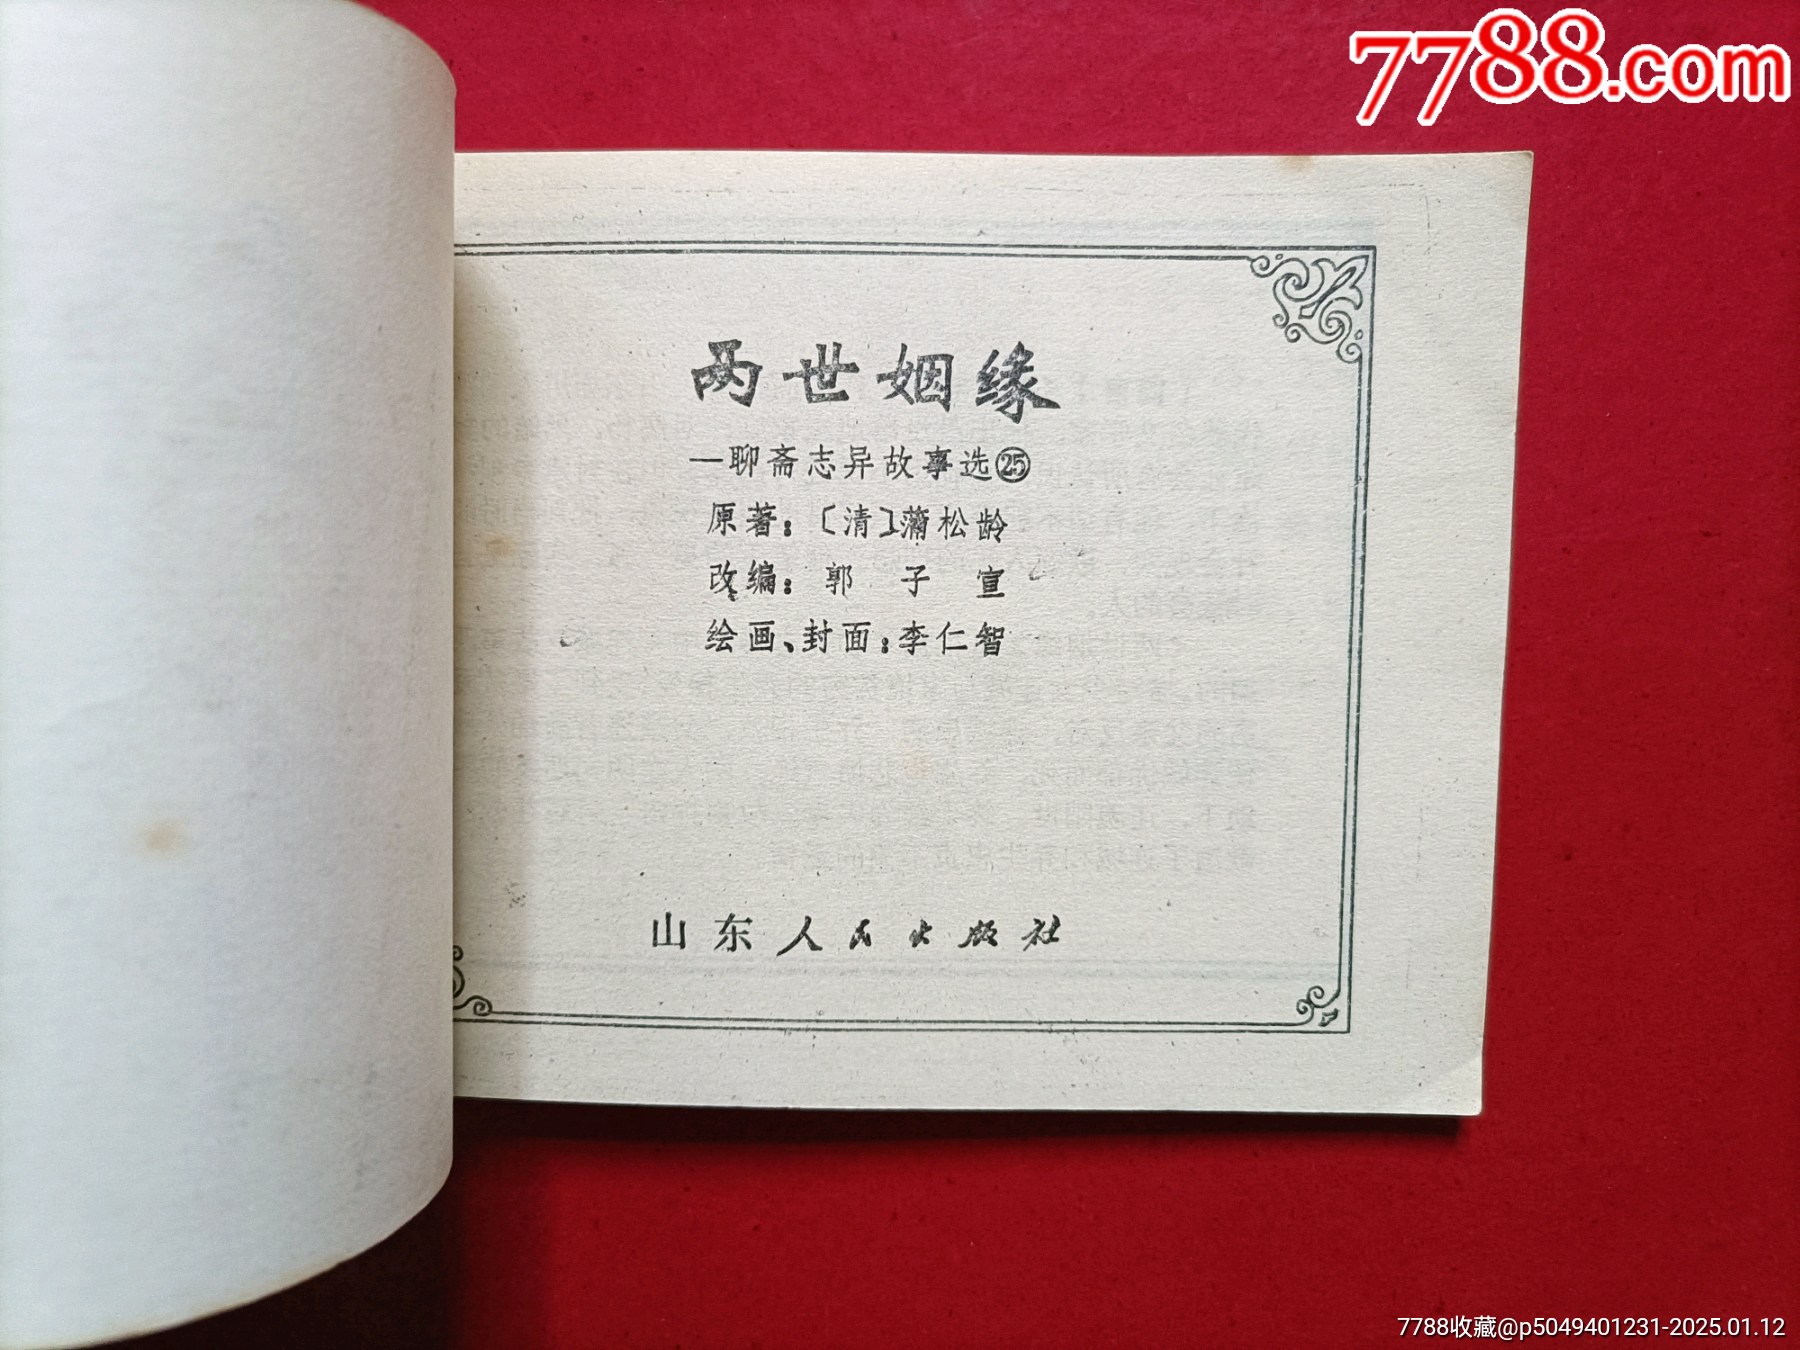 7788.com
两世姻缘
—聊斋志异故事选㉕
原著：〔清〕蒲松龄
改编：郭子宣
绘画、封面：李仁智
山东人民出版社
7788收藏@p5049401231-2025.01.12